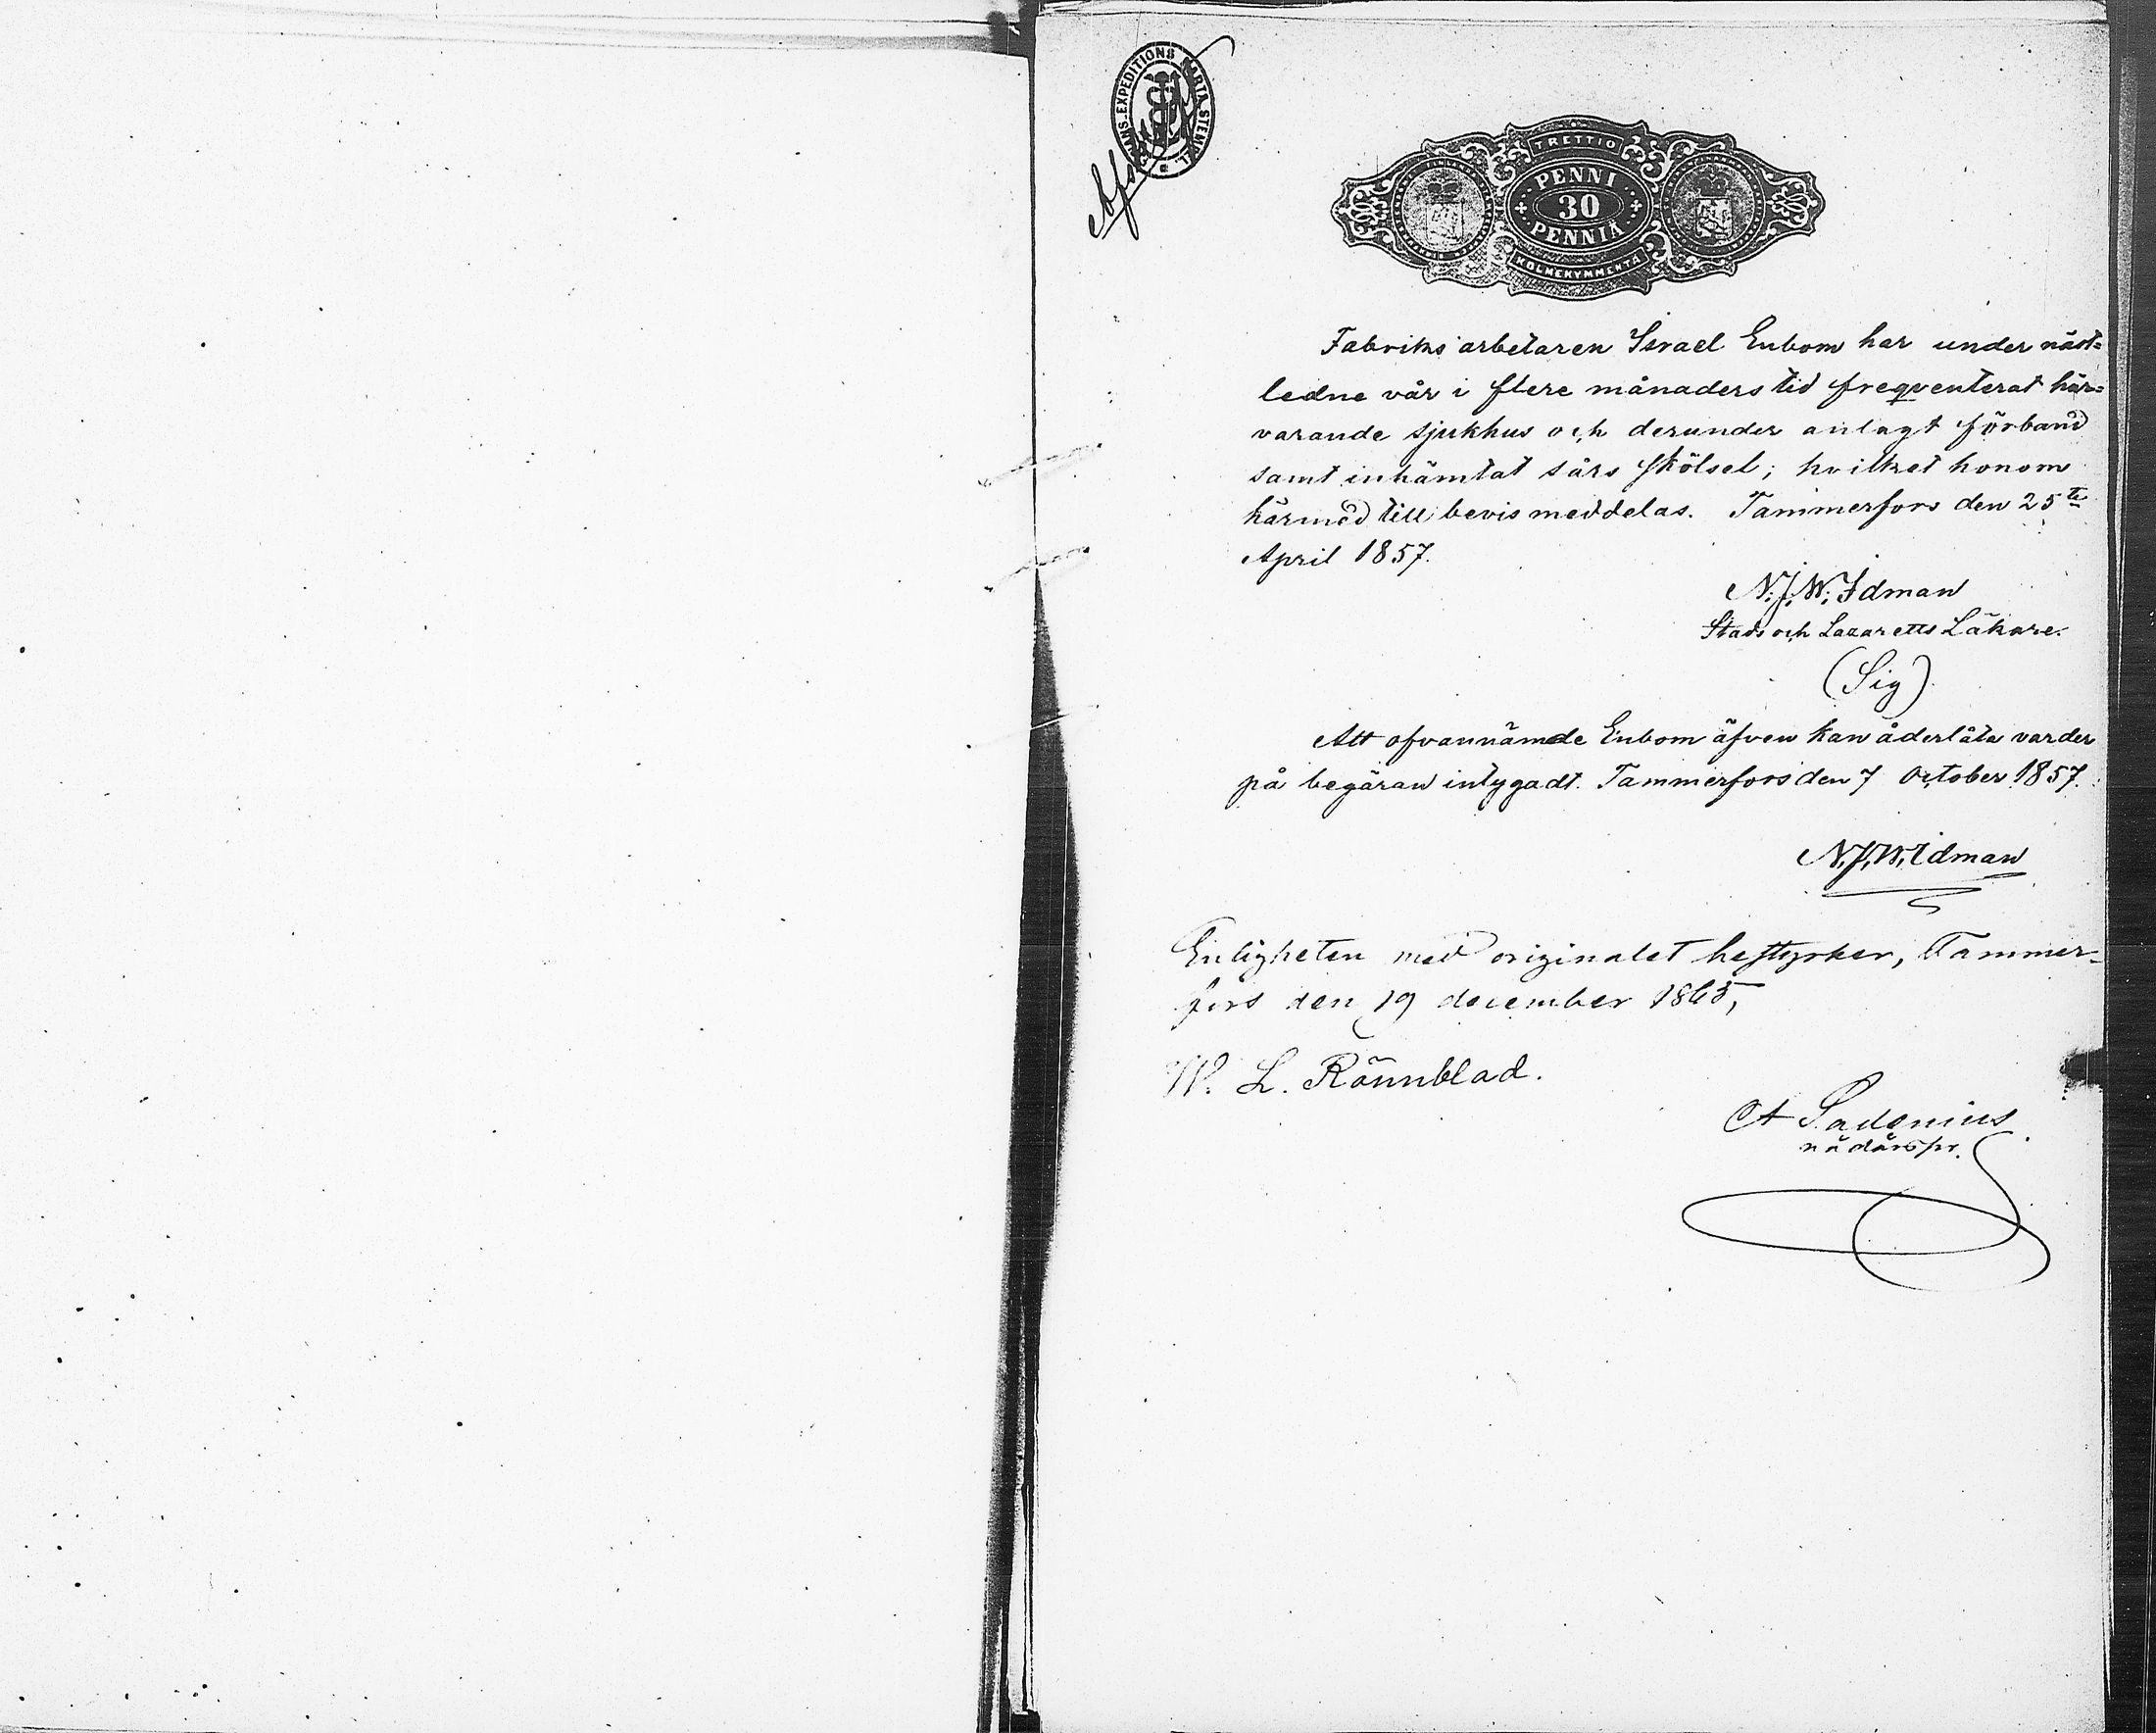 EXPEDITIONS KARTA STEMPEL
TRETTIO
PENNI
30
PENNIÄ
KOLMEKYMMENTÄ
Fabriks arbetaren Israel Enbom har under näst=
ledne vår i flere månaders tid freqventerat här=
varande sjukhus och derunder anlagt förband
samt inhämtat sårs skötsel; hvilket honom
härmed till bevis meddelas. Tammerfors den 25te
April 1857.
N. J. W. Idman
Stads och Lazaretts Läkare.
(Sig)
Att ofvannämde Enbom äfven kan åderlåta varder
på begäran intygadt. Tammerfors den 7 October 1857.
N. J. W. Idman
Enligheten med originalet bestyrker, Tammer-
fors den 19 december 1865,
W. L. Rönnblad.
A Sadenius
rådårspr.